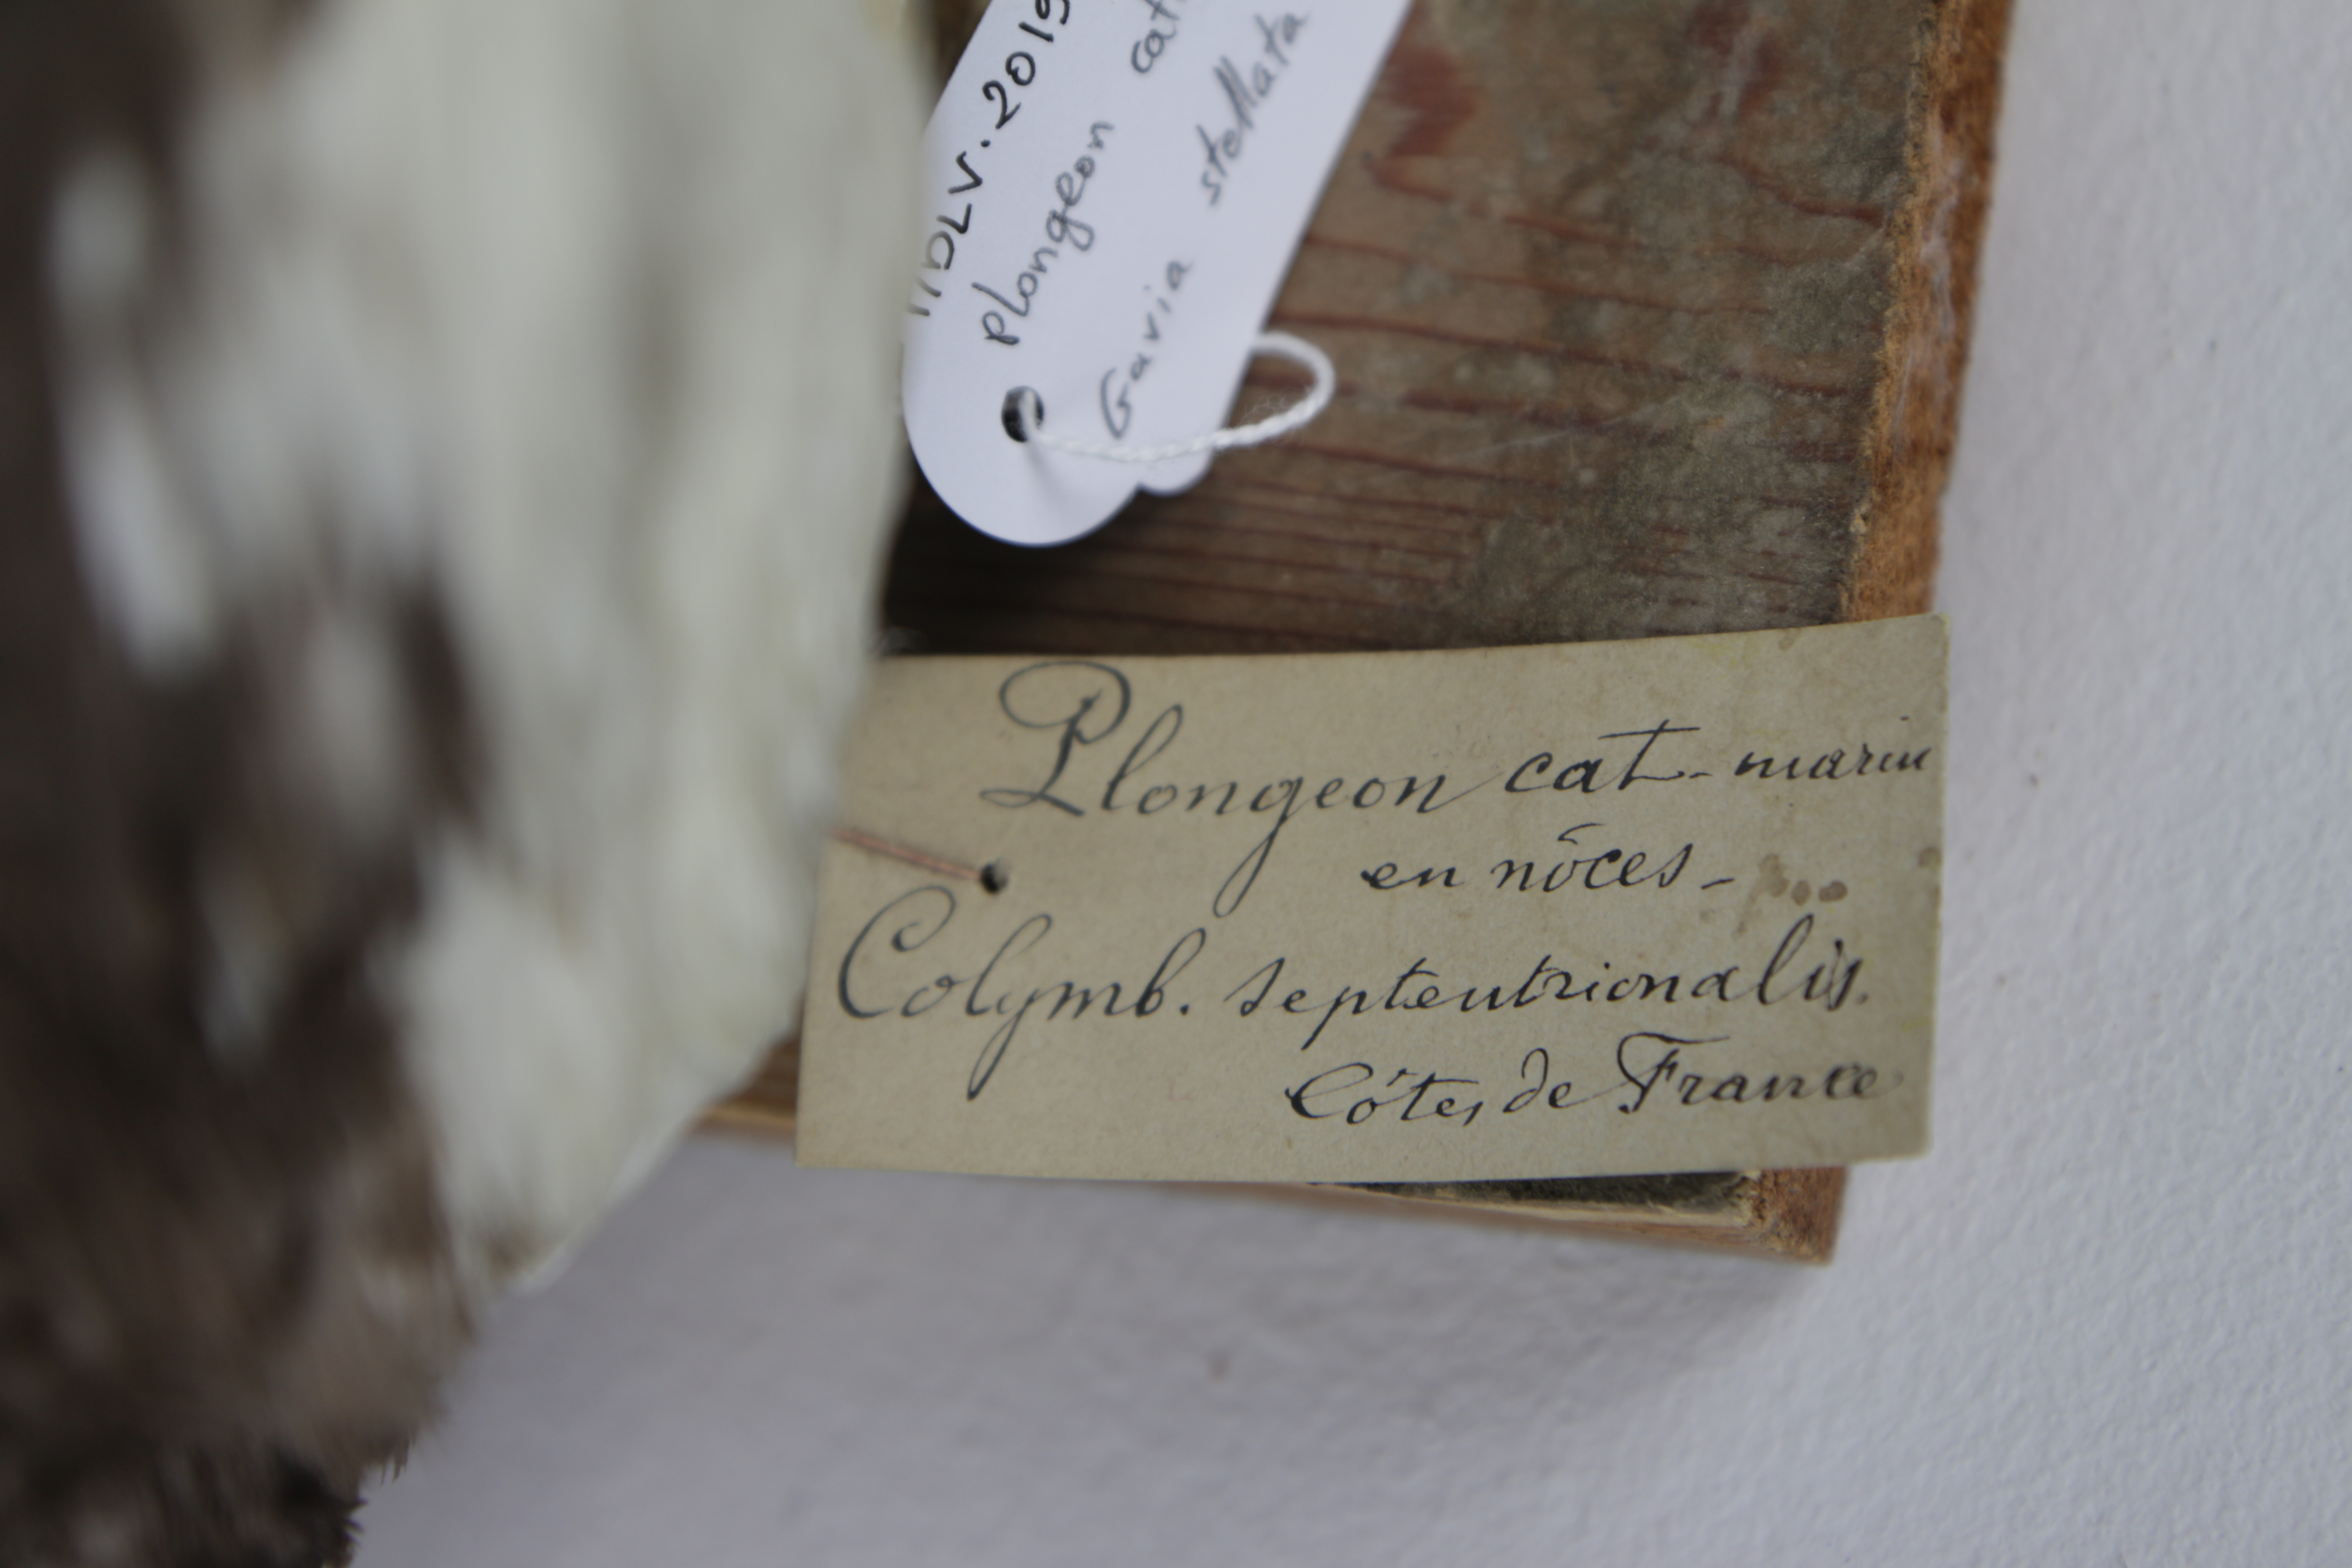 MDLV.2019
plongeon cat
Gavia stellata
Plongeon cat-marin
en nôces-
Colymb. septentrionalis.
Côtes de France